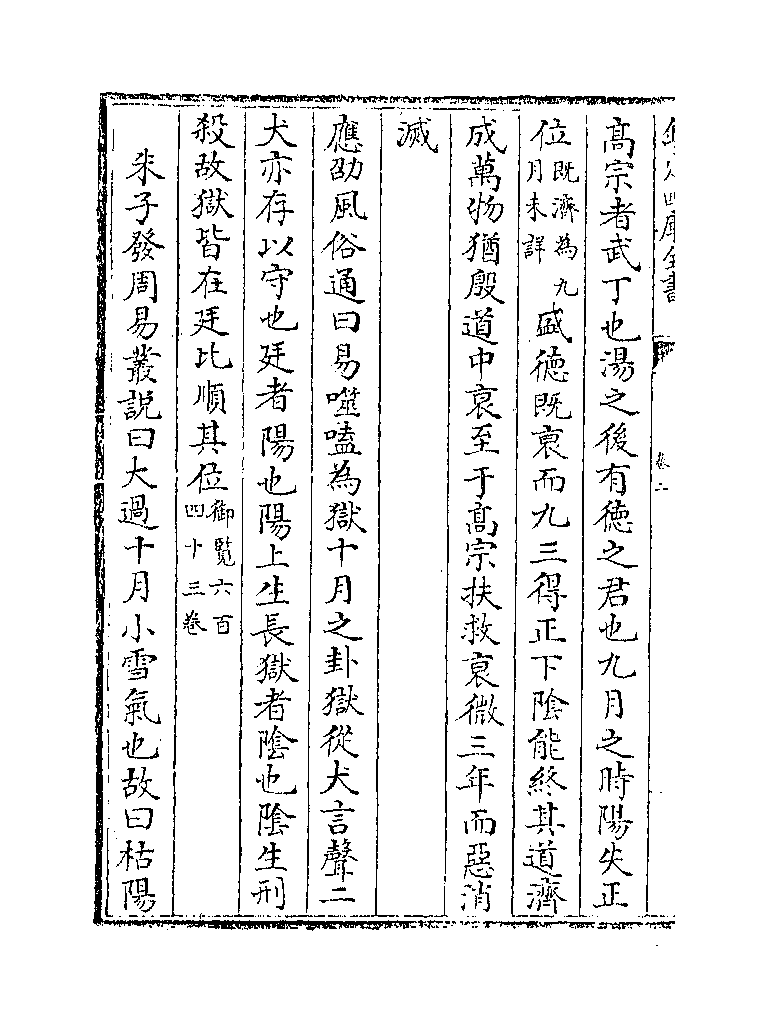 欽定四庫全書
卷二
高宗者武丁也湯之後有德之君也九月之時陽失正
位既濟為九月未詳盛德既衰而九三得正下陰能終其道濟
成萬物猶殷道中衰至于高宗扶救衰微三年而惡消
滅
應劭風俗通曰易噬嗑為獄十月之卦獄從犬言聲二
犬亦存以守也廷者陽也陽上生長獄者陰也陰生刑
殺故獄皆在廷比順其位御覽六百四十三卷
朱子發周易叢說曰大過十月小雪氣也故曰枯陽